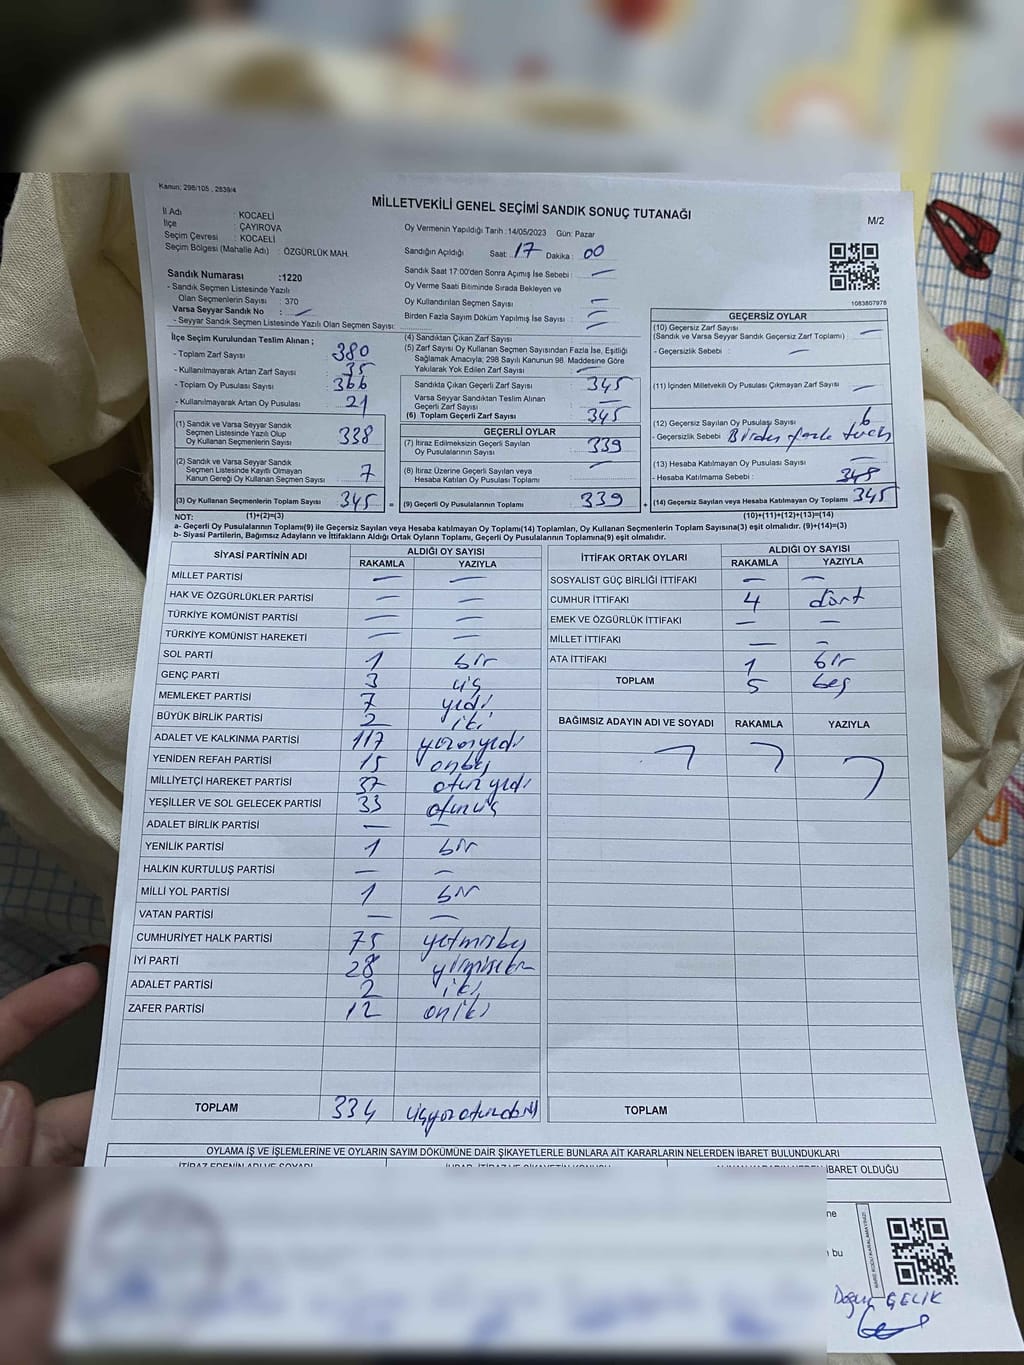 Kanun: 298/105 , 2839/4
MİLLETVEKİLİ GENEL SEÇİMİ SANDIK SONUÇ TUTANAĞI
M/2
İl Adı : KOCAELİ
İlçe : ÇAYIROVA
Seçim Çevresi : KOCAELİ
Seçim Bölgesi (Mahalle Adı) : ÖZGÜRLÜK MAH.
Oy Vermenin Yapıldığı Tarih :14/05/2023 Gün: Pazar
Sandığın Açıldığı Saat: 17 Dakika : 00
Sandık Saat 17:00'den Sonra Açımış İse Sebebi : —
Oy Verme Saati Bitiminde Sırada Bekleyen ve
Oy Kullandırılan Seçmen Sayısı : —
Birden Fazla Sayım Döküm Yapılmış İse Sayısı : —
1083807978
Sandık Numarası :1220
- Sandık Seçmen Listesinde Yazılı
Olan Seçmenlerin Sayısı : 370
Varsa Seyyar Sandık No : —
- Seyyar Sandık Seçmen Listesinde Yazılı Olan Seçmen Sayısı:
İlçe Seçim Kurulundan Teslim Alınan ;
- Toplam Zarf Sayısı : 380
- Kullanılmayarak Artan Zarf Sayısı : 35
- Toplam Oy Pusulası Sayısı : 366
- Kullanılmayarak Artan Oy Pusulası : 21
(1) Sandık ve Varsa Seyyar Sandık
Seçmen Listesinde Yazılı Olup
Oy Kullanan Seçmenlerin Sayısı 338
(2) Sandık ve Varsa Seyyar Sandık
Seçmen Listesinde Kayıtlı Olmayan
Kanun Gereği Oy Kullanan Seçmen Sayısı 7
(3) Oy Kullanan Seçmenlerin Toplam Sayısı 345 =
(4) Sandıktan Çıkan Zarf Sayısı :
(5) Zarf Sayısı Oy Kullanan Seçmen Sayısından Fazla İse, Eşitliği
Sağlamak Amacıyla; 298 Sayılı Kanunun 98. Maddesine Göre
Yakılarak Yok Edilen Zarf Sayısı : —
Sandıkta Çıkan Geçerli Zarf Sayısı : 345
Varsa Seyyar Sandıktan Teslim Alınan
Geçerli Zarf Sayısı : —
(6) Toplam Geçerli Zarf Sayısı : 345
GEÇERLİ OYLAR
(7) İtiraz Edilmeksizin Geçerli Sayılan
Oy Pusulalarının Sayısı : 339
(8) İtiraz Üzerine Geçerli Sayılan veya
Hesaba Katılan Oy Pusulaları Toplamı : —
(9) Geçerli Oy Pusulalarının Toplamı : 339 +
GEÇERSİZ OYLAR
(10) Geçersiz Zarf Sayısı
(Sandık ve Varsa Seyyar Sandık Geçersiz Zarf Toplamı) : —
- Geçersizlik Sebebi : —
(11) İçinden Milletvekili Oy Pusulası Çıkmayan Zarf Sayısı : —
(12) Geçersiz Sayılan Oy Pusulası Sayısı : 6
- Geçersizlik Sebebi : Birden fazla
(13) Hesaba Katılmayan Oy Pusulası Sayısı : —
- Hesaba Katılmama Sebebi : 345
(14) Geçersiz Sayılan veya Hesaba Katılmayan Oy Toplamı : 345
NOT: (1)+(2)=(3) (10)+(11)+(12)+(13)=(14)
a- Geçerli Oy Pusulalarının Toplamı(9) ile Geçersiz Sayılan veya Hesaba katılmayan Oy Toplamı(14) Toplamları, Oy Kullanan Seçmenlerin Toplam Sayısına(3) eşit olmalıdır. (9)+(14)=(3)
b- Siyasi Partilerin, Bağımsız Adayların ve İttifakların Aldığı Ortak Oyların Toplamı, Geçerli Oy Pusulalarının Toplamına(9) eşit olmalıdır.
SİYASİ PARTİNİN ADI ALDIĞI OY SAYISI
RAKAMLA YAZIYLA
MİLLET PARTİSİ — —
HAK VE ÖZGÜRLÜKLER PARTİSİ — —
TÜRKİYE KOMÜNİST PARTİSİ — —
TÜRKİYE KOMÜNİST HAREKETİ — —
SOL PARTİ 1 bir
GENÇ PARTİ 3 üç
MEMLEKET PARTİSİ 7 yedi
BÜYÜK BİRLİK PARTİSİ 2 iki
ADALET VE KALKINMA PARTİSİ 117 yüzonyedi
YENİDEN REFAH PARTİSİ 15 onbeş
MİLLİYETÇİ HAREKET PARTİSİ 37 otuzyedi
YEŞİLLER VE SOL GELECEK PARTİSİ 33 otuzüç
ADALET BİRLİK PARTİSİ — —
YENİLİK PARTİSİ 1 bir
HALKIN KURTULUŞ PARTİSİ — —
MİLLİ YOL PARTİSİ 1 bir
VATAN PARTİSİ — —
CUMHURİYET HALK PARTİSİ 75 yetmişbeş
İYİ PARTİ 28 yirmisekiz
ADALET PARTİSİ 2 iki
ZAFER PARTİSİ 12 oniki
TOPLAM 334 üçyüzotuzdört
İTTİFAK ORTAK OYLARI ALDIĞI OY SAYISI
RAKAMLA YAZIYLA
SOSYALİST GÜÇ BİRLİĞİ İTTİFAKI — —
CUMHUR İTTİFAKI 4 dört
EMEK VE ÖZGÜRLÜK İTTİFAKI — —
MİLLET İTTİFAKI — —
ATA İTTİFAKI 1 bir
TOPLAM 5 beş
BAĞIMSIZ ADAYIN ADI VE SOYADI RAKAMLA YAZIYLA
TOPLAM
OYLAMA İŞ VE İŞLEMLERİNE VE OYLARIN SAYIM DÖKÜMÜNE DAİR ŞİKAYETLERLE BUNLARA AİT KARARLARIN NELERDEN İBARET BULUNDUKLARI
İBARET OLDUĞU
ne
bu
ÇELİK